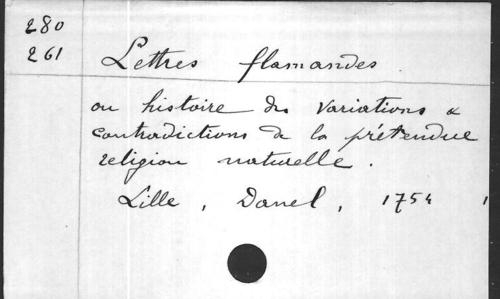 280
261
Lettres flamandes
ou histoire des variations &
contradictions de la prétendue
religion naturelle.
Lille, Danel, 1754 1